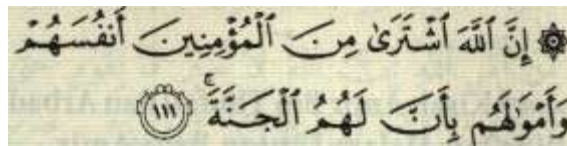 ۞ إِنَّ ٱللَّهَ ٱشْتَرَىٰ مِنَ ٱلْمُؤْمِنِينَ أَنفُسَهُمْ
وَأَمْوَٰلَهُم بِأَنَّ لَهُمُ ٱلْجَنَّةَ ۚ ١١١